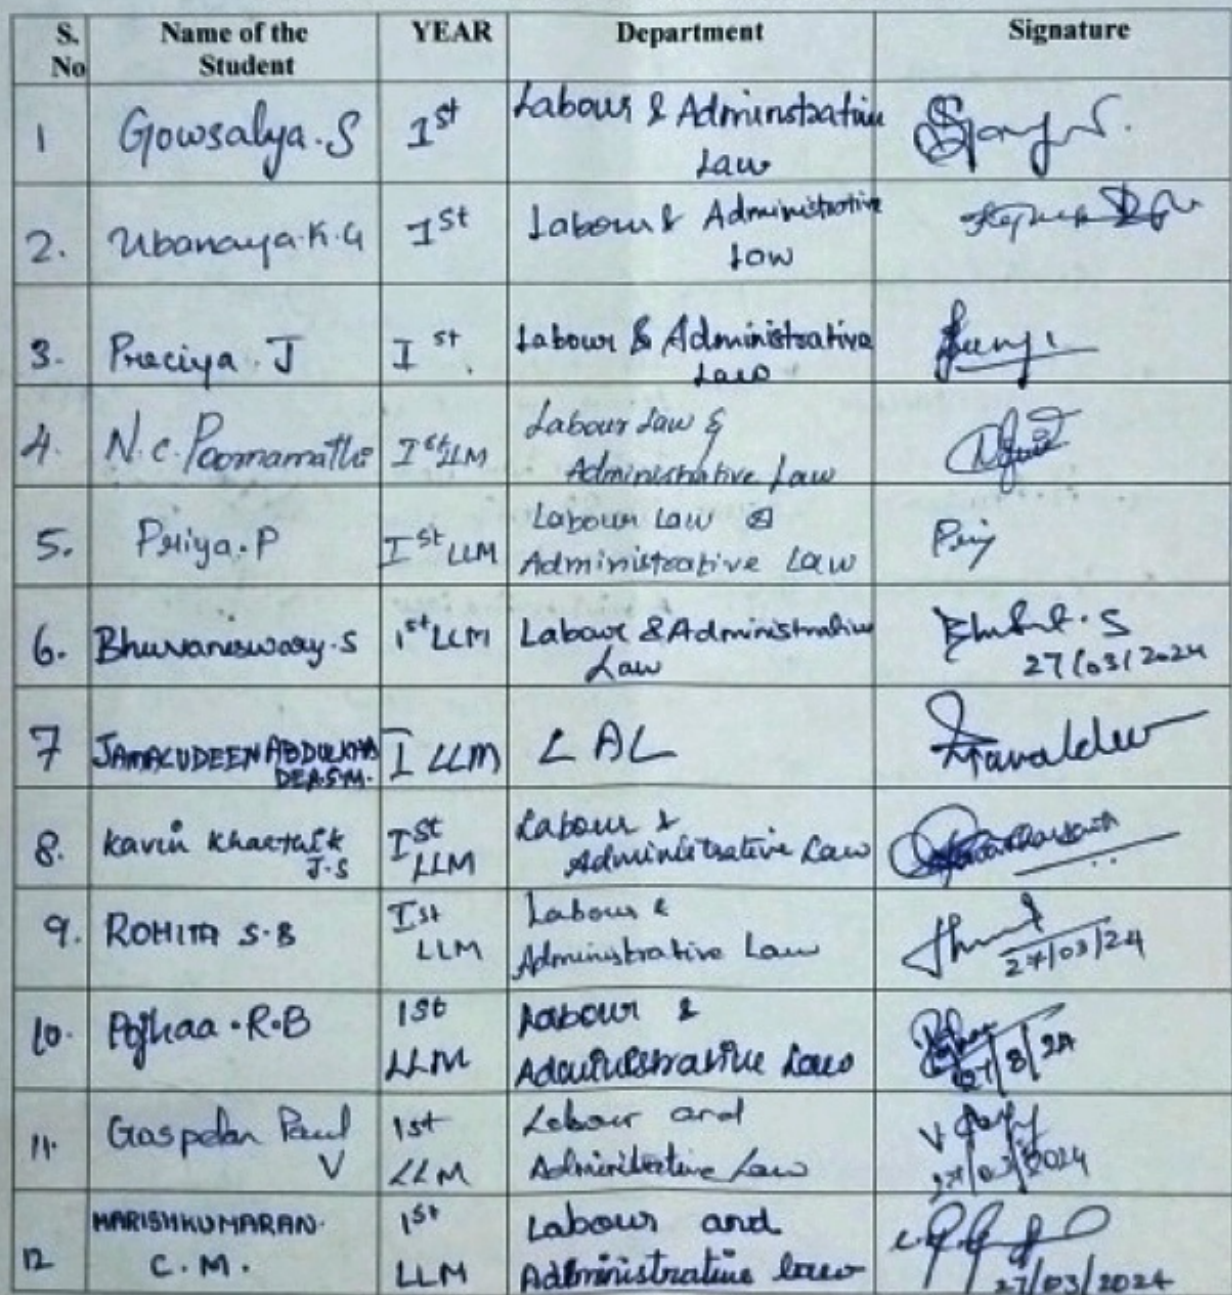 S. No Name of the Student YEAR Department Signature
1 Gowsalya.S Ist Labour & Adminstrative Law
2. Ubanaya.K.G Ist Labour & Administrative Law
3. Preciya. J Ist Labour & Administrative Law
4. N.C. Poornamathi Ist LLM Labour Law & Administrative Law
5. Priya.P Ist LLM Labour Law & Administrative Law Priy
6. Bhuvaneswary.S Ist LLM Labour & Administrative Law 27/03/2024
7 JAMALUDEEN ABDUL KHA DEAR S.M. I LLM LAL
8. Kavin Kharthik J.S Ist LLM Labour & Administrative Law
9. ROHITA S.B Ist LLM Labour & Administrative Law 27/03/24
10. Pojhaa.R.B 1st LLM Labour & Administrative Law 27/8/24
11. Gaspelan Paul V 1st LLM Labour and Administrative Law 27/03/2024
12 HARISHKUMARAN. C.M. 1st LLM Labour and Administrative law 27/03/2024